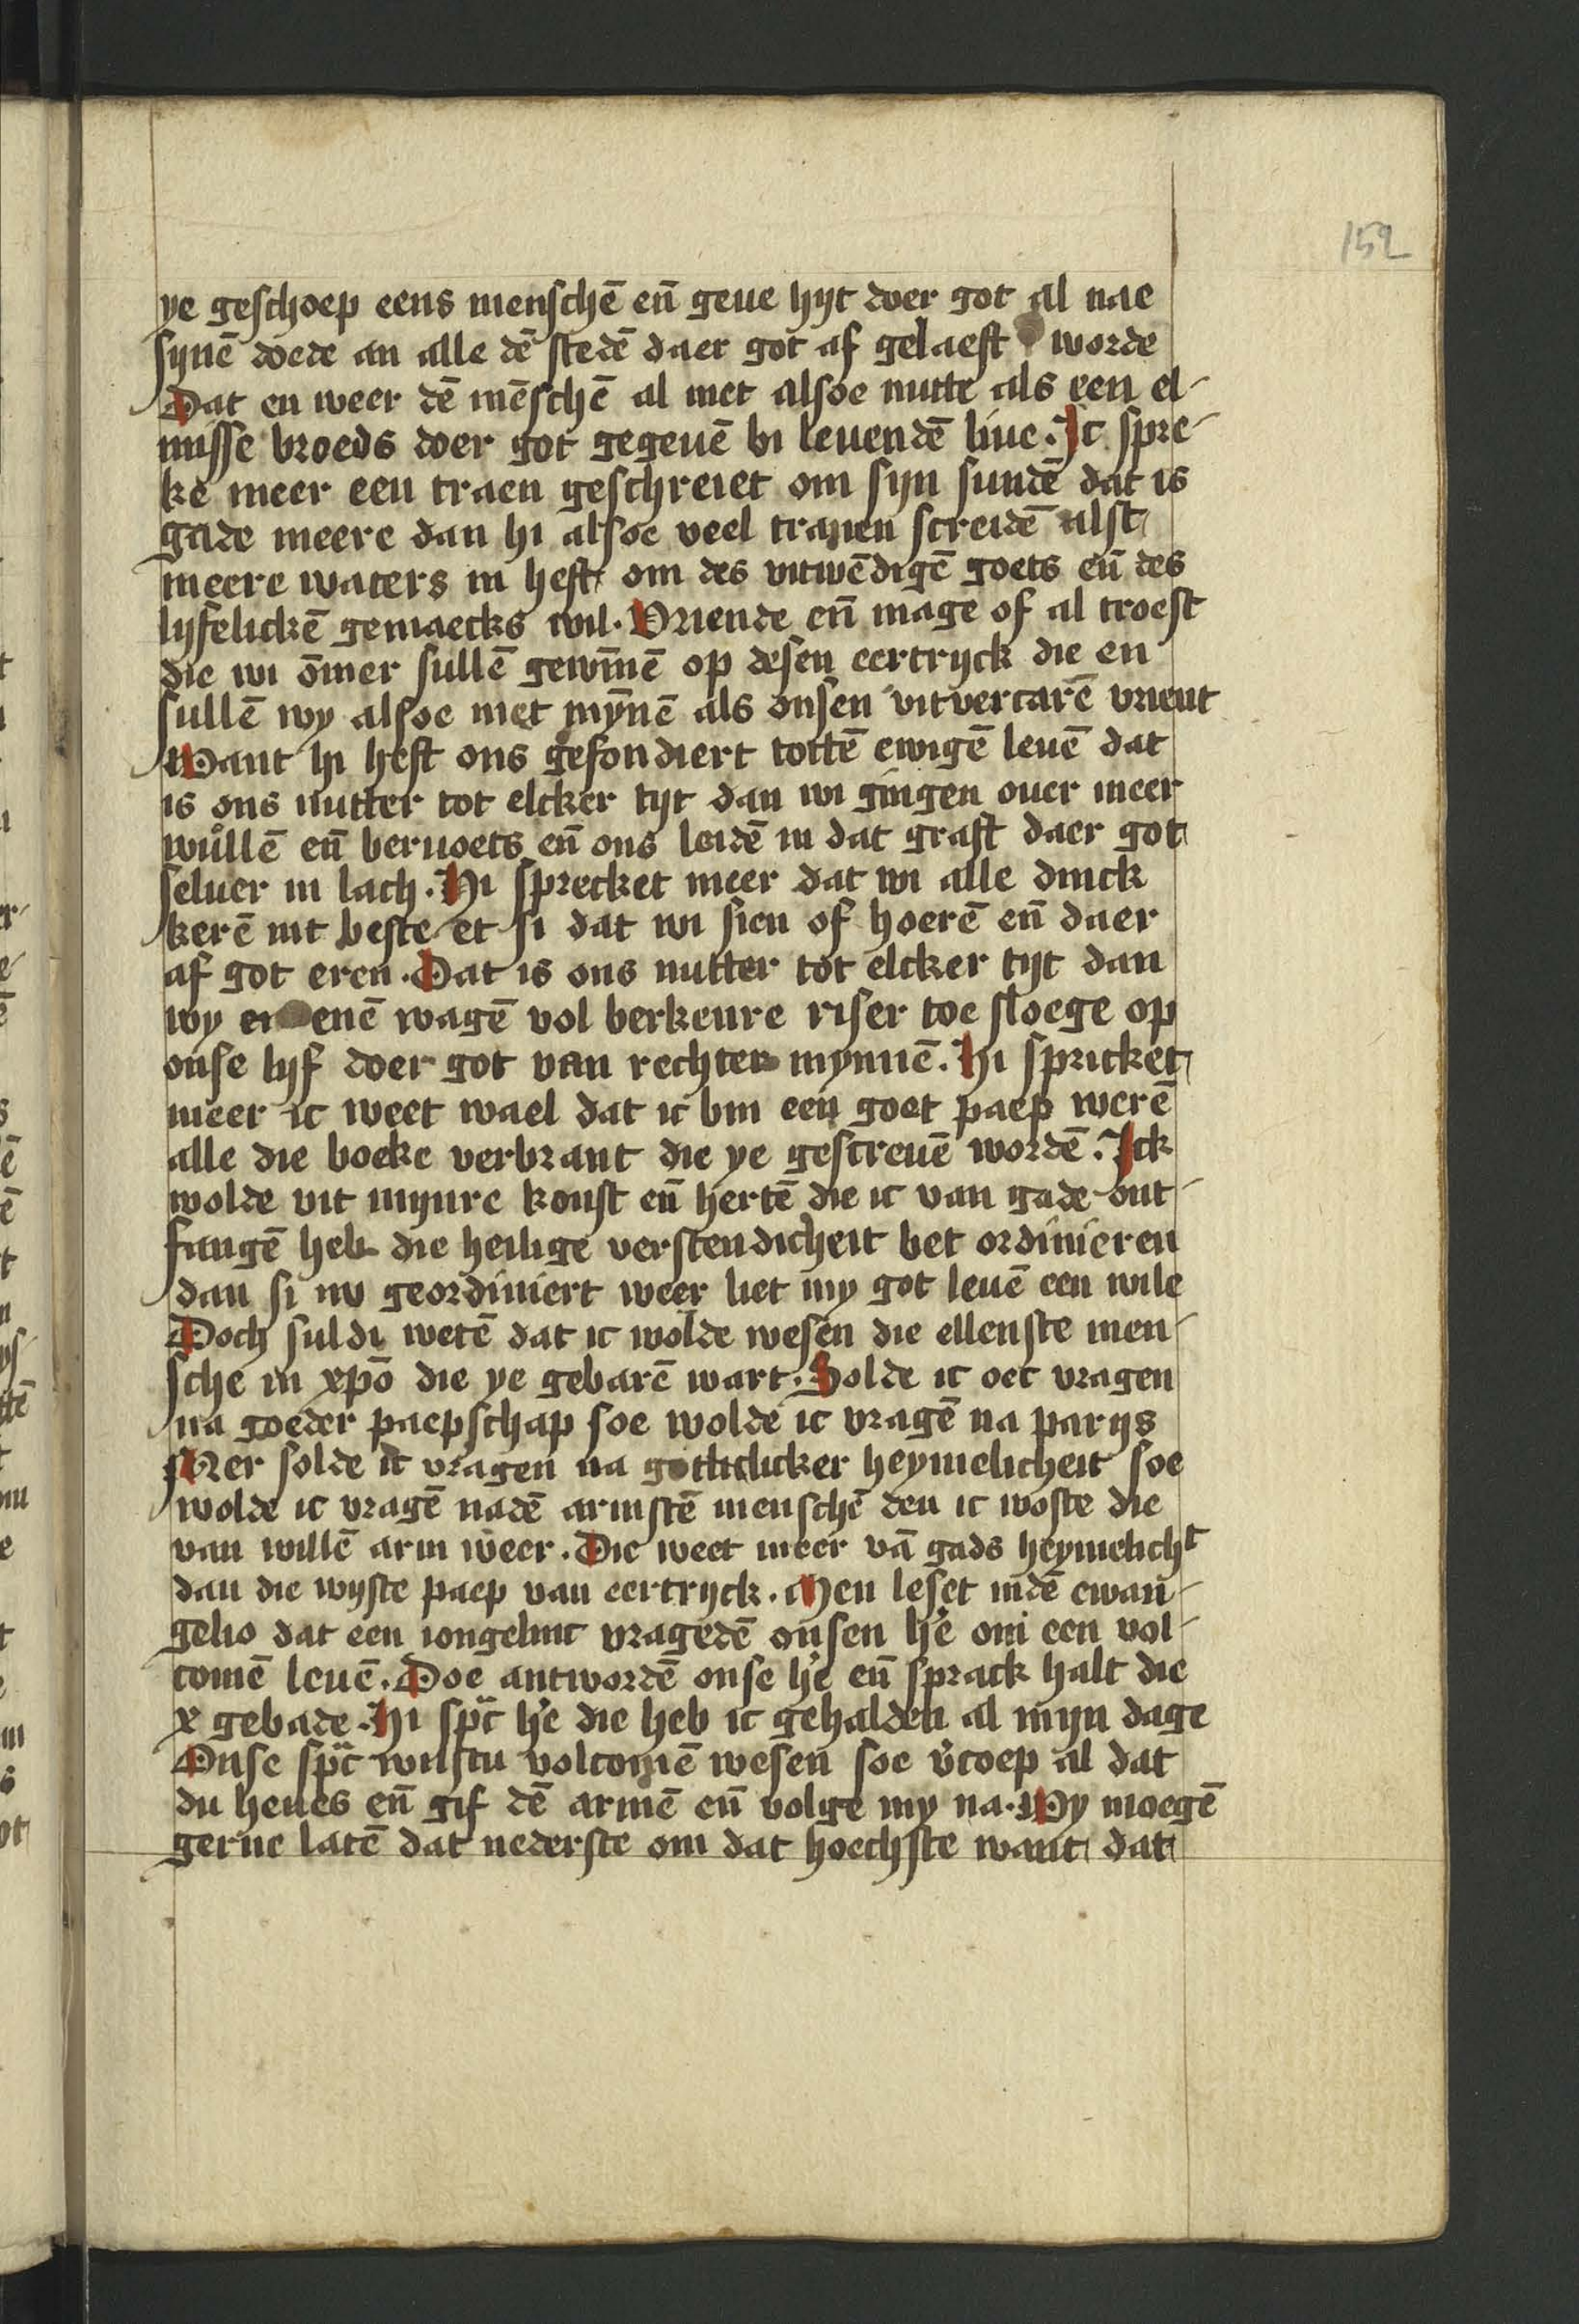 152
ye geschoep eens menschē en̄ geue hijt doer got al nae
sijnē doede an alle dē stedē daer got af gelaest worde
Dat en weer dē mēschē al niet alsoe nutte als een el-
nisse broeds doer got gegeuē bi leuendē liue. Ic spre-
ke meer een traen geschreiet om sijn sundē dat is
gade meere dan hi alsoe veel tranen screidē alst
meere waters in heft om des vitwēdigē goets en̄ des
lijfelickē gemaecks wil. Vriende en̄ mage of al troest
die wi ōmer sullē gewīnē op desen eertrijck die en
sullē wy alsoe niet mȳnē als onsen vitvercarē vrient
Want hi heft ons gefondiert tottē ewigē leuē dat
is ons nutter tot elcker tijt dan wi gingen ouer meer
wůllē en̄ beruoets en̄ ons leidē in dat graft daer got
seluer in lach. Hi sprecket meer dat wi alle dinck
kerē int beste et si dat wi sien of hoerē en̄ daer
af got eren. Dat is ons nutter tot elcker tijt dan
wy enē wagē vol berkenre riser toe sloege op
onse lijf doer got van rechter mynnē. Hi spricket
meer ic weet wael dat ic bin een goet paep werē
alle die boeke verbrant die ye gescreuē wordē. Ick
wolde vit mijnre konst en̄ hertē die ic van gade ont-
fangē heb die heilige verstendicheit bet ordinieren
dan si nv geordiniert weer liet my got leuē een wile
Doch suldi wetē dat ic wolde wesen die ellenste men-
sche in xp̄o die ye gebarē wart. Solde ic oec vragen
na goeder paepschap soe wolde ic vragē na parijs
Mer solde ic vragen na gotlicker heymelicheit soe
wolde ic vragē nadē armstē menschē den ic woste die
van willē arm weer. Die weet meer vā gads heymelichᵗ
dan die wijste paep van eertrijck. Men leset indē ewan-
gelio dat een iongelinc vragedē onsen h'e om een vol-
comē leuē. Doe antwordē onse h'e en̄ sprack halt die
x gebade. Hi sp̄c h'e die heb ic gehalden al mijn dage
Onse sp̄c wilstu volcomē wesen soe v'coep al dat
du heues en̄ gif dē armē en̄ volge my na. Wy moegē
gerne latē dat nederste om dat hoechste want dat